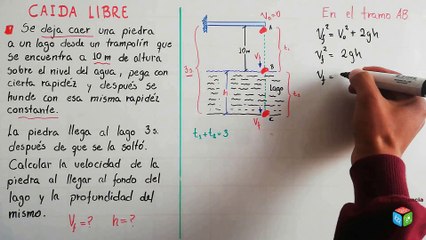 CAIDA LIBRE
Se deja caer una piedra
a un lago desde un trampolín que
se encuentra a 10 m de altura
sobre el nivel del agua, pega con
cierta rapidez y después se
hunde con esa misma rapidez
constante.
La piedra llega al lago 3s.
después de que se la soltó.
Calcular la velocidad de la
piedra al llegar al fondo del
lago y la profundidad del
mismo.
Vf = ?    h = ?
Vo=0
A
10m
t1
3s
Vf
B
h
Lago
t2
Vf
C
t1 + t2 = 3
En el tramo AB
Vf² = Vo² + 2gh
Vf² = 2gh
Vf =